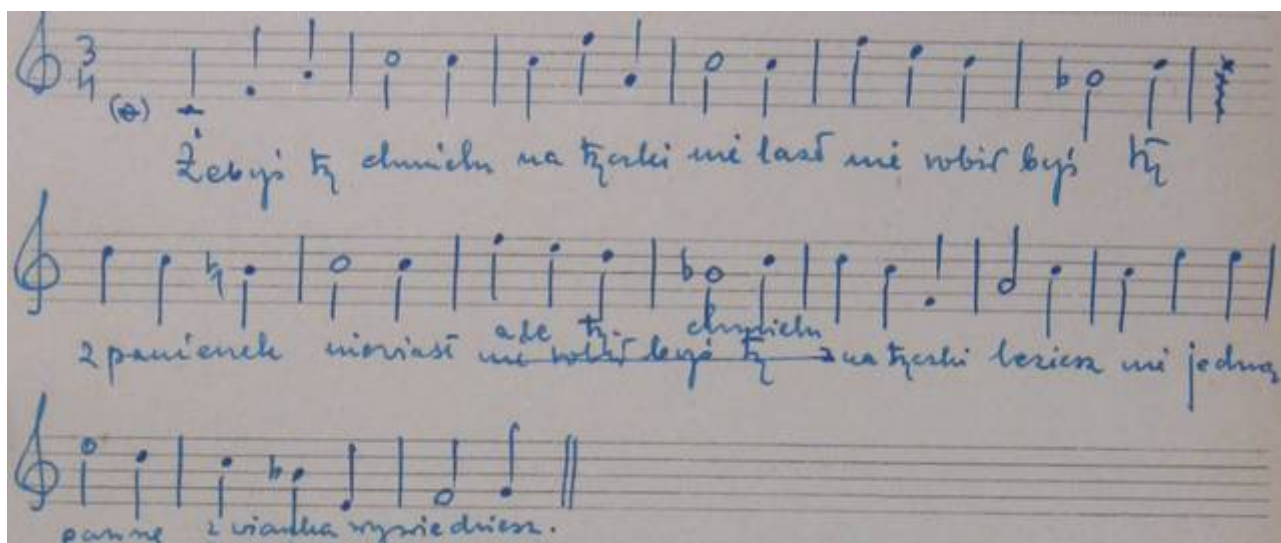 3 4
Żebyś ty chmielu na tyczki nie lazł nie robił byś ty
z panienek niewiast nie robił byś ty ale ty chmielu na tyczki leziesz nie jedną
pannę z wianka wywiedziesz.